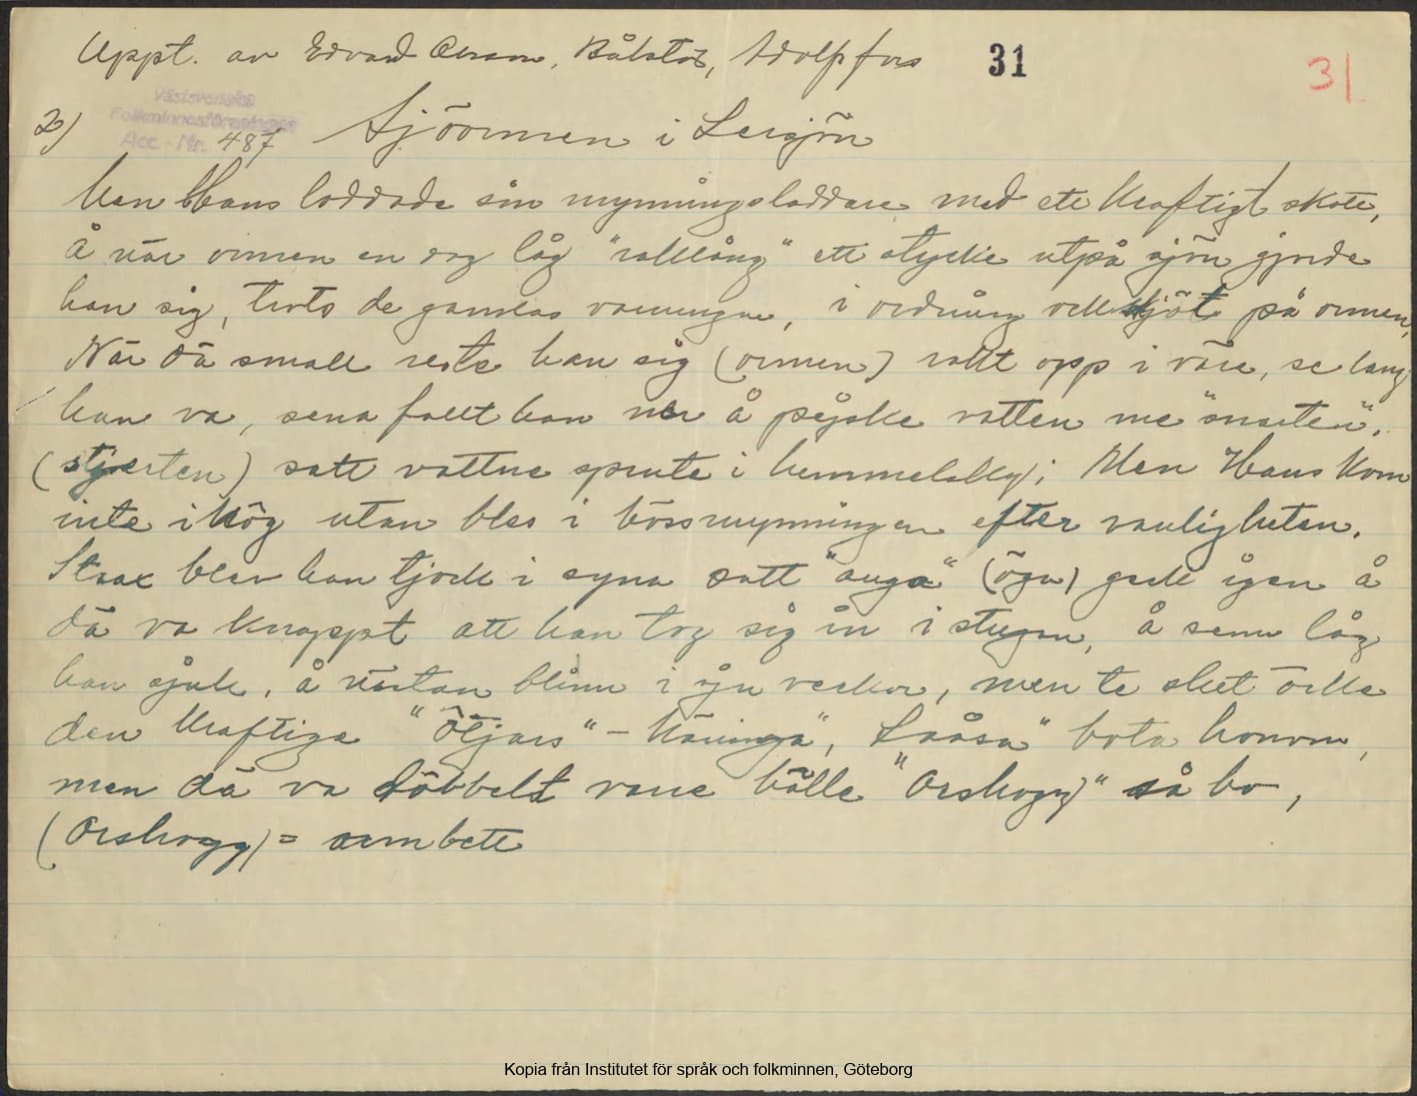 Uppt. av Edvard Olsson, Bålstös, Adolfsfors 31 31
Västsvenska
Folkminnesföreningen
Acc. Nr. 487
2) Sjöormen i Lersjön
Men Hans laddade sin mynningsladdare med ett kraftigt skott,
å när ormen en dag låg "raklång" ett stycke utpå sjön gjorde
han sig, trots de gamlas varningar, i ordning och skjöt på ormen,
När dä small reste han sig (ormen) rakt opp i väre, se lang
han va, sena fallt han ner å pejske vatten me "snerten".
(stjerten) satt vattne sprute i hemmelsky; Men Hans kom
inte ihög utan bles i bössmynningen efter vanligheten.
Strax blev han tjock i syna satt "auga" (öga) gack igen å
dä va knappt att han tog sig in i stugan, å senn låg
han sjuk, å nästan blinn i sju veckor, men te slut ville
den kraftiga "Ötjärs"-käringa", Lååsa" bota honom,
men dä va döbbelt vane hålle "Orshogg" så bo,
(Orshogg) = ormbett
Kopia från Institutet för språk och folkminnen, Göteborg